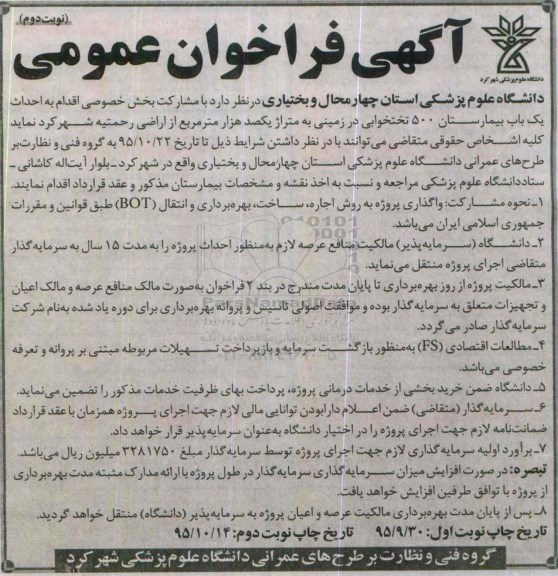 (نوبت دوم)
آگهی فراخوان عمومی
دانشگاه علوم پزشکی شهر کرد
دانشگاه علوم پزشکی استان چهارمحال و بختیاری در نظر دارد با مشارکت بخش خصوصی اقدام به احداث
یک باب بیمارستان ۵۰۰ تختخوابی در زمینی به متراژ یکصد هزار مترمربع از اراضی رحمتیه شهر کرد نماید
کلیه اشخاص حقوقی متقاضی می‌توانند با در نظر داشتن شرایط ذیل تا تاریخ ۹۵/۱۰/۲۲ به گروه فنی و نظارت بر
طرح‌های عمرانی دانشگاه علوم پزشکی استان چهارمحال و بختیاری واقع در شهر کرد ـ بلوار آیت‌اله کاشانی ـ
ستاد دانشگاه علوم پزشکی مراجعه و نسبت به اخذ نقشه و مشخصات بیمارستان مذکور و عقد قرارداد اقدام نمایند.
۱ـ نحوه مشارکت: واگذاری پروژه به روش اجاره، ساخت، بهره‌برداری و انتقال (BOT) طبق قوانین و مقررات
جمهوری اسلامی ایران می‌باشد.
۲ـ دانشگاه (سرمایه‌پذیر) مالکیت منافع عرصه لازم به‌منظور احداث پروژه را به مدت ۱۵ سال به سرمایه‌گذار
متقاضی اجرای پروژه منتقل می‌نماید.
۳ـ مالکیت پروژه از روز بهره‌برداری تا پایان مدت مندرج در بند ۲ فراخوان به‌صورت مالک منافع عرصه و مالک اعیان
و تجهیزات متعلق به سرمایه‌گذار بوده و موافقت اصولی تاسیس و پروانه بهره‌برداری برای دوره یاد شده به‌نام شرکت
سرمایه‌گذار صادر می‌گردد.
۴ـ مطالعات اقتصادی (FS) به‌منظور بازگشت سرمایه و بازپرداخت تسهیلات مربوطه مبتنی بر پروانه و تعرفه
خصوصی می‌باشد.
۵ـ دانشگاه ضمن خرید بخشی از خدمات درمانی پروژه، پرداخت بهای ظرفیت خدمات مذکور را تضمین می‌نماید.
۶ـ سرمایه‌گذار (متقاضی) ضمن اعلام دارا بودن توانایی مالی لازم جهت اجرای پروژه همزمان با عقد قرارداد
ضمانت‌نامه لازم جهت اجرای پروژه را در اختیار دانشگاه به‌عنوان سرمایه‌پذیر قرار خواهد داد.
۷ـ برآورد اولیه سرمایه‌گذاری لازم جهت اجرای پروژه توسط سرمایه‌گذار مبلغ ۳۲۸۱۷۵۰ میلیون ریال می‌باشد.
تبصره: در صورت افزایش میزان سرمایه‌گذاری سرمایه‌گذار در طول پروژه با ارائه مدارک مثبته مدت بهره‌برداری
از پروژه با توافق طرفین افزایش خواهد یافت.
۸ـ پس از پایان مدت بهره‌برداری مالکیت عرصه و اعیان پروژه به سرمایه‌پذیر (دانشگاه) منتقل خواهد گردید.
تاریخ چاپ نوبت اول: ۹۵/۹/۳۰ تاریخ چاپ نوبت دوم: ۹۵/۱۰/۱۴
گروه فنی و نظارت بر طرح‌های عمرانی دانشگاه علوم پزشکی شهر کرد